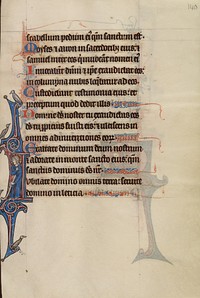 scabellum pedum eius qm sanctum est
Moyses & aaron in sacerdotib; eius:
samuel int eos qui inuocant nomen ei
Inuocabant dnm & ipse exaudiebat eos
in columpna nubis loquebatur ad eos
Custodiebant testimonia eius:
preceptum quod dedit illis
Domine ds noster tu exaudiebas eos
ds tu propicius fuisti eis: ulciscens in
omnes adinuentiones eor
Exaltate dominum deum nostrum
& adorate in monte sancto eius: qm
sanctus dominus ds nr
Iubilate domino omnis terra: seruite
domino in leticia